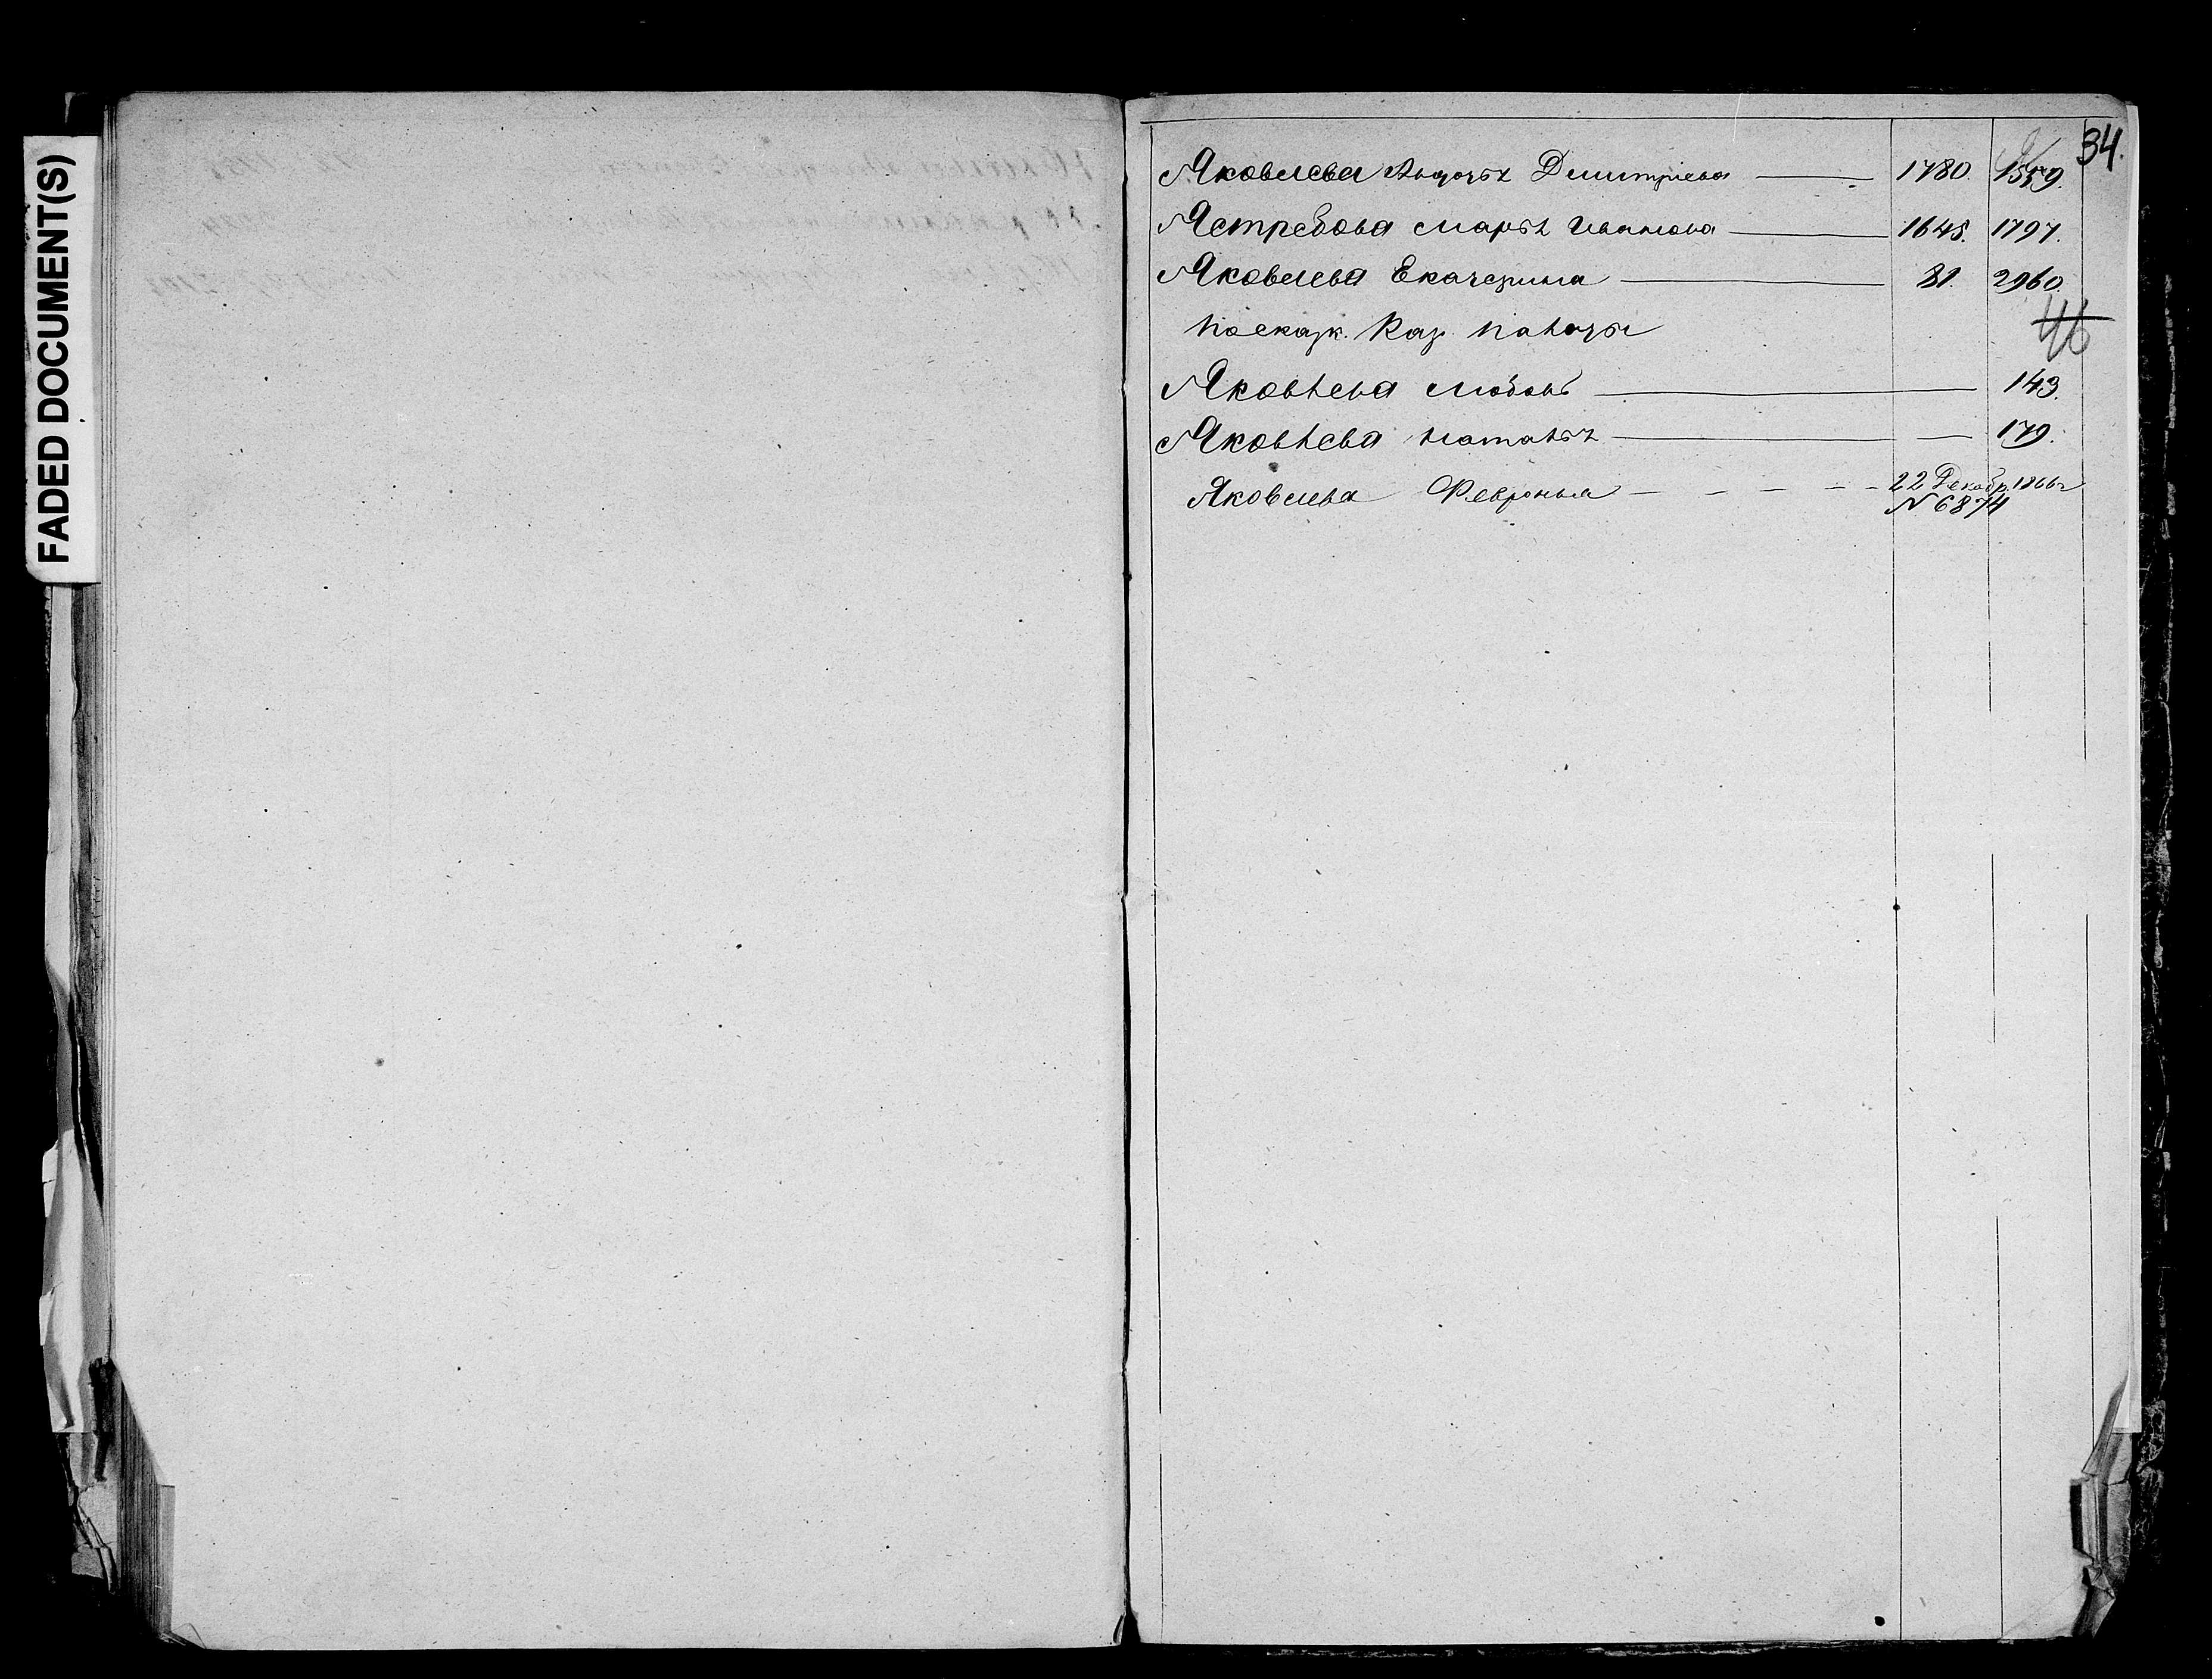 FADED DOCUMENT(S)
34.
Яковлева Авдотья Дмитріева — 1780. 1559.
Ястребова Марья Иванова — 1645. 1797.
Яковлева Екатерина — 81. 2960.
По сказк. Каз. Палаты
46
Яковлева Любовь — 143.
Яковлева Наталья — — 179.
Яковлева Февронья — — — — — 22 Декабр. 1866 г
N 6874